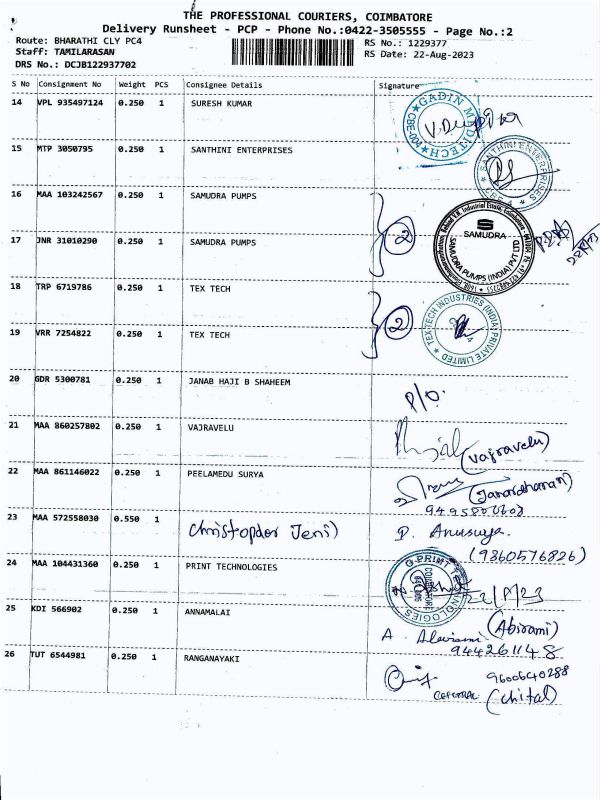 THE PROFESSIONAL COURIERS, COIMBATORE
Delivery Runsheet - PCP - Phone No.:0422-3505555 - Page No.:2
Route: BHARATHI CLY PC4 RS No.: 1229377
Staff: TAMILARASAN RS Date: 22-Aug-2023
DRS No.: DCJB122937702
S No Consignment No Weight PCS Consignee Details Signature
14 VPL 935497124 0.250 1 SURESH KUMAR
GADIN MEDITECH
15 MTP 3050795 0.250 1 SANTHINI ENTERPRISES
SANTHINI ENTERPRISES
CBE-4
16 MAA 103242567 0.250 1 SAMUDRA PUMPS
2
SAMUDRA
SAMUDRA PUMPS (INDIA) PVT LTD
17 JNR 31010290 0.250 1 SAMUDRA PUMPS
18 TRP 6719786 0.250 1 TEX TECH
2
TEX-TECH INDUSTRIES (INDIA) PRIVATE LIMITED
19 VRR 7254822 0.250 1 TEX TECH
20 GDR 5300781 0.250 1 JANAB HAJI B SHAHEEM
P/O.
21 MAA 860257802 0.250 1 VAJRAVELU
(Vajravelu)
22 MAA 861146022 0.250 1 PEELAMEDU SURYA
(Janardhanan)
23 MAA 572558030 0.550 1 Christopher Jeni) P. Anusuya.
(9360576826)
24 MAA 104431360 0.250 1 PRINT TECHNOLOGIES
25 KDI 566902 0.250 1 ANNAMALAI
(Abirami)
944261148
26 TUT 6544981 0.250 1 RANGANAYAKI
9600640288
(Chital)